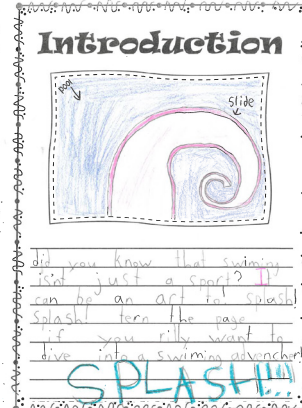 Introduction
pool
slide
did you know that swiming
isnt just a sport? I
can be an art to! splash!
splash! tern the page
if you rilly want to
dive into a swiming advencher!
SPLASH!!!